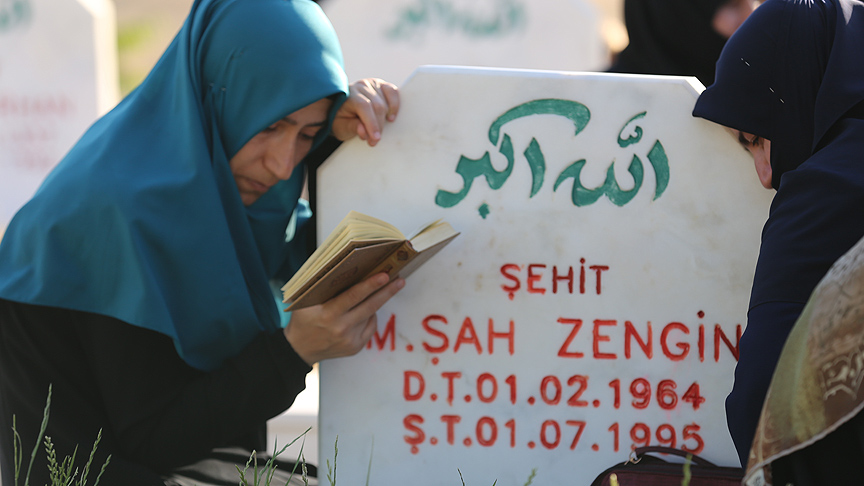 الله اكبر
ŞEHİT
M.ŞAH ZENGİN
D.T.01.02.1964
Ş.T.01.07.1995